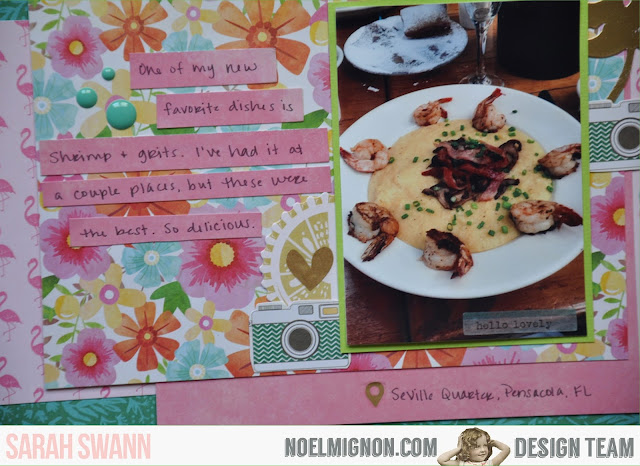 One of my new
favorite dishes is
Shrimp + grits. I've had it at
a couple places, but these were
the best. So delicious.
hello lovely
Seville Quarter, Pensacola, FL
SARAH SWANN
NOELMIGNON.COM DESIGN TEAM